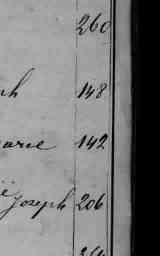 260
ph 148
arie 142
Joseph 206